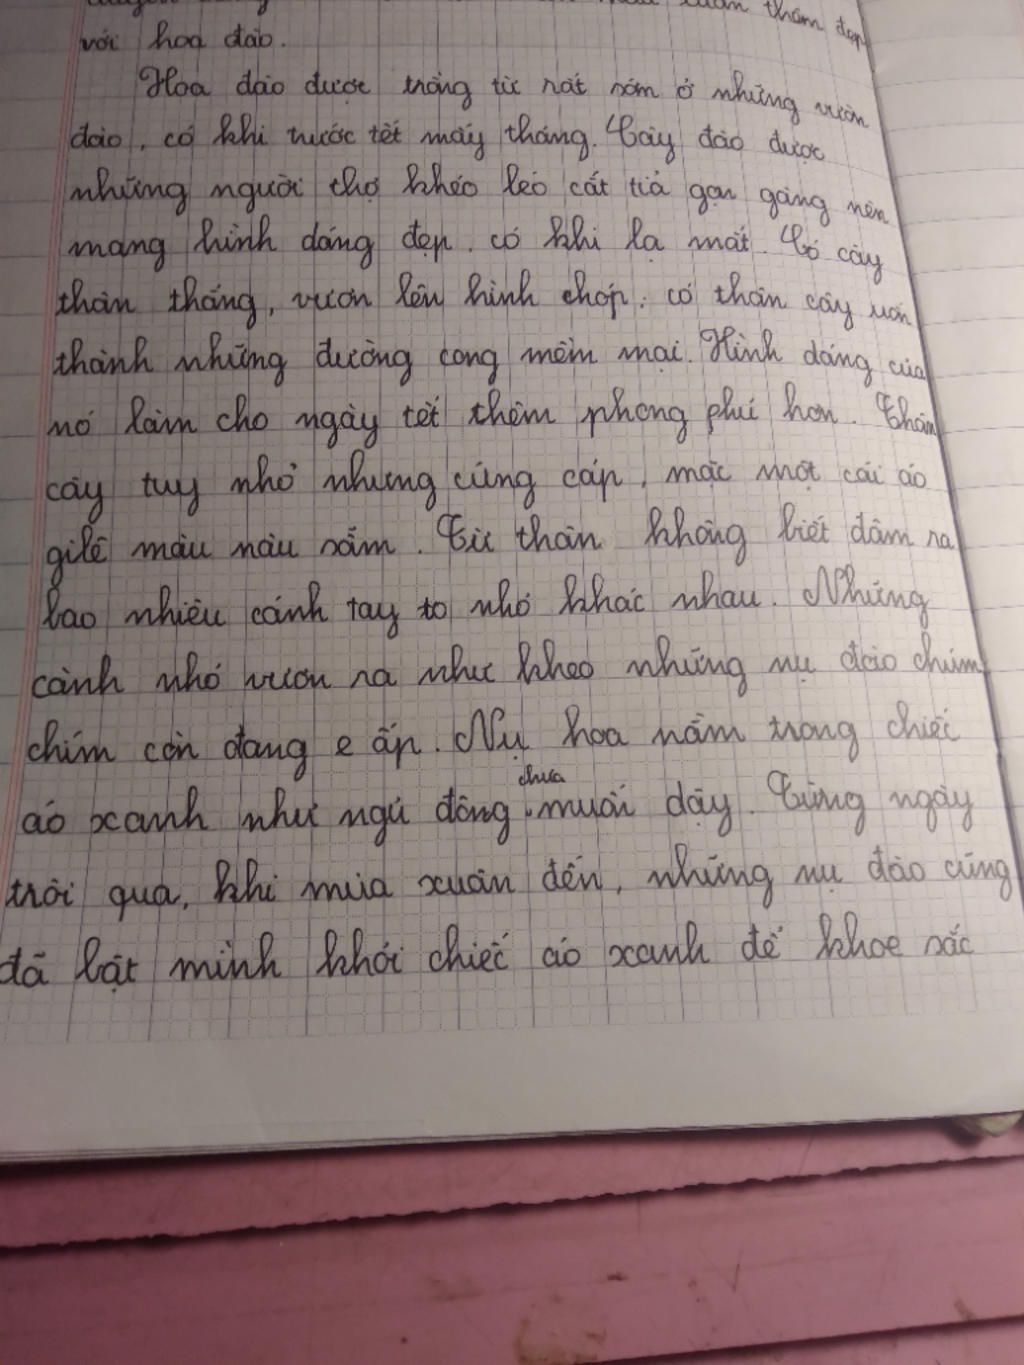 xuân thắm đẹp
với hoa đào.
Hoa đào được trồng từ rất sớm ở những vườn
đào, có khi trước tết mấy tháng. Cây đào được
những người thợ khéo léo cắt tỉa gọn gàng nên
mang hình dáng đẹp, có khi lạ mắt. Có cây
thân thẳng, vươn lên hình chóp, có thân cây uốn
thành những đường cong mềm mại. Hình dáng của
nó làm cho ngày tết thêm phong phú hơn. Thân
cây tuy nhỏ nhưng cứng cáp, mặc một cái áo
gilê màu nâu sẫm. Từ thân không biết đâm ra
bao nhiêu cánh tay to nhỏ khác nhau. Những
cành nhỏ vươn ra như kheo những nụ đào chúm
chím còn đang e ấp. Nụ hoa nằm trong chiếc
áo xanh như ngủ đông chưa muốn dậy. Từng ngày
trôi qua, khi mùa xuân đến, những nụ đào cũng
đã bật mình khỏi chiếc áo xanh để khoe sắc